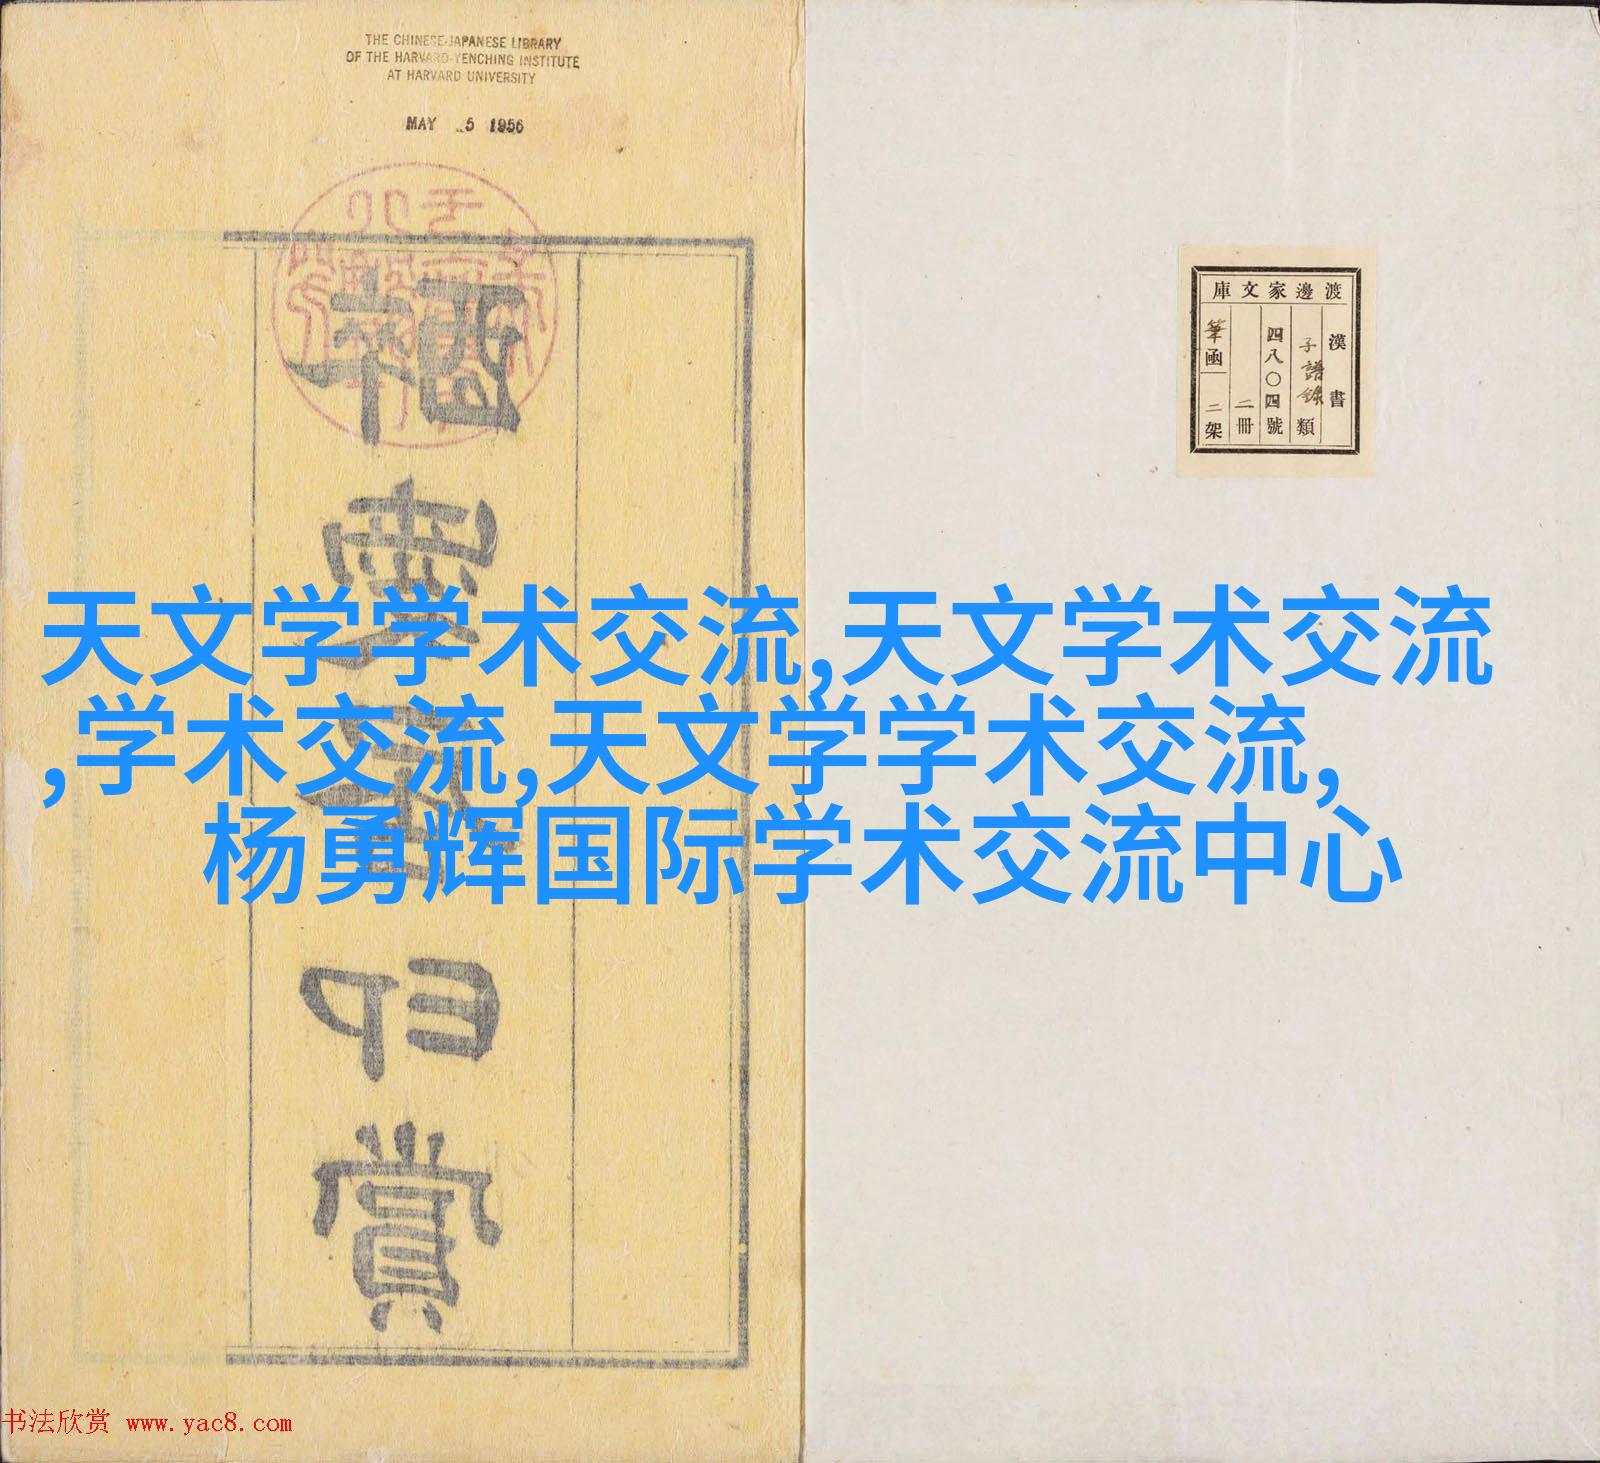 THE CHINESE-JAPANESE LIBRARY
OF THE HARVARD-YENCHING INSTITUTE
AT HARVARD UNIVERSITY
MAY 5 1956
渡邊家文庫
漢書
子譜錄類
四八〇四號
二冊
筆函二架
天文学学术交流,天文学术交流
,学术交流,天文学学术交流,
杨勇辉国际学术交流中心
印
賞
书法欣赏 www.yac8.com